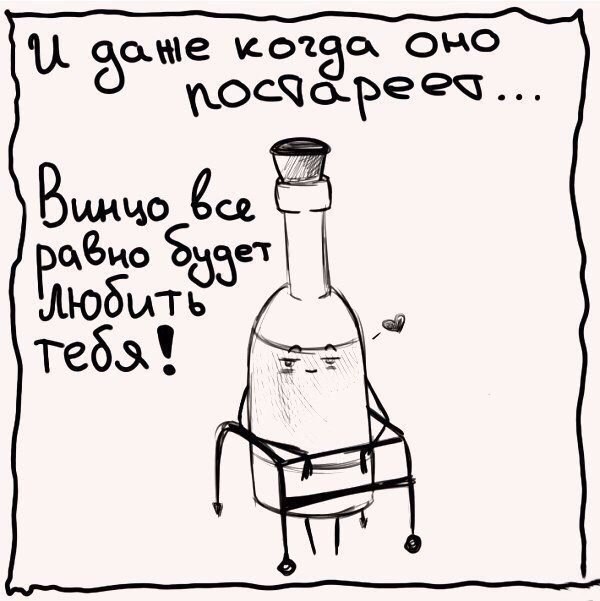 И даже когда оно
постареет...
Винцо все
равно будет
любить
тебя!